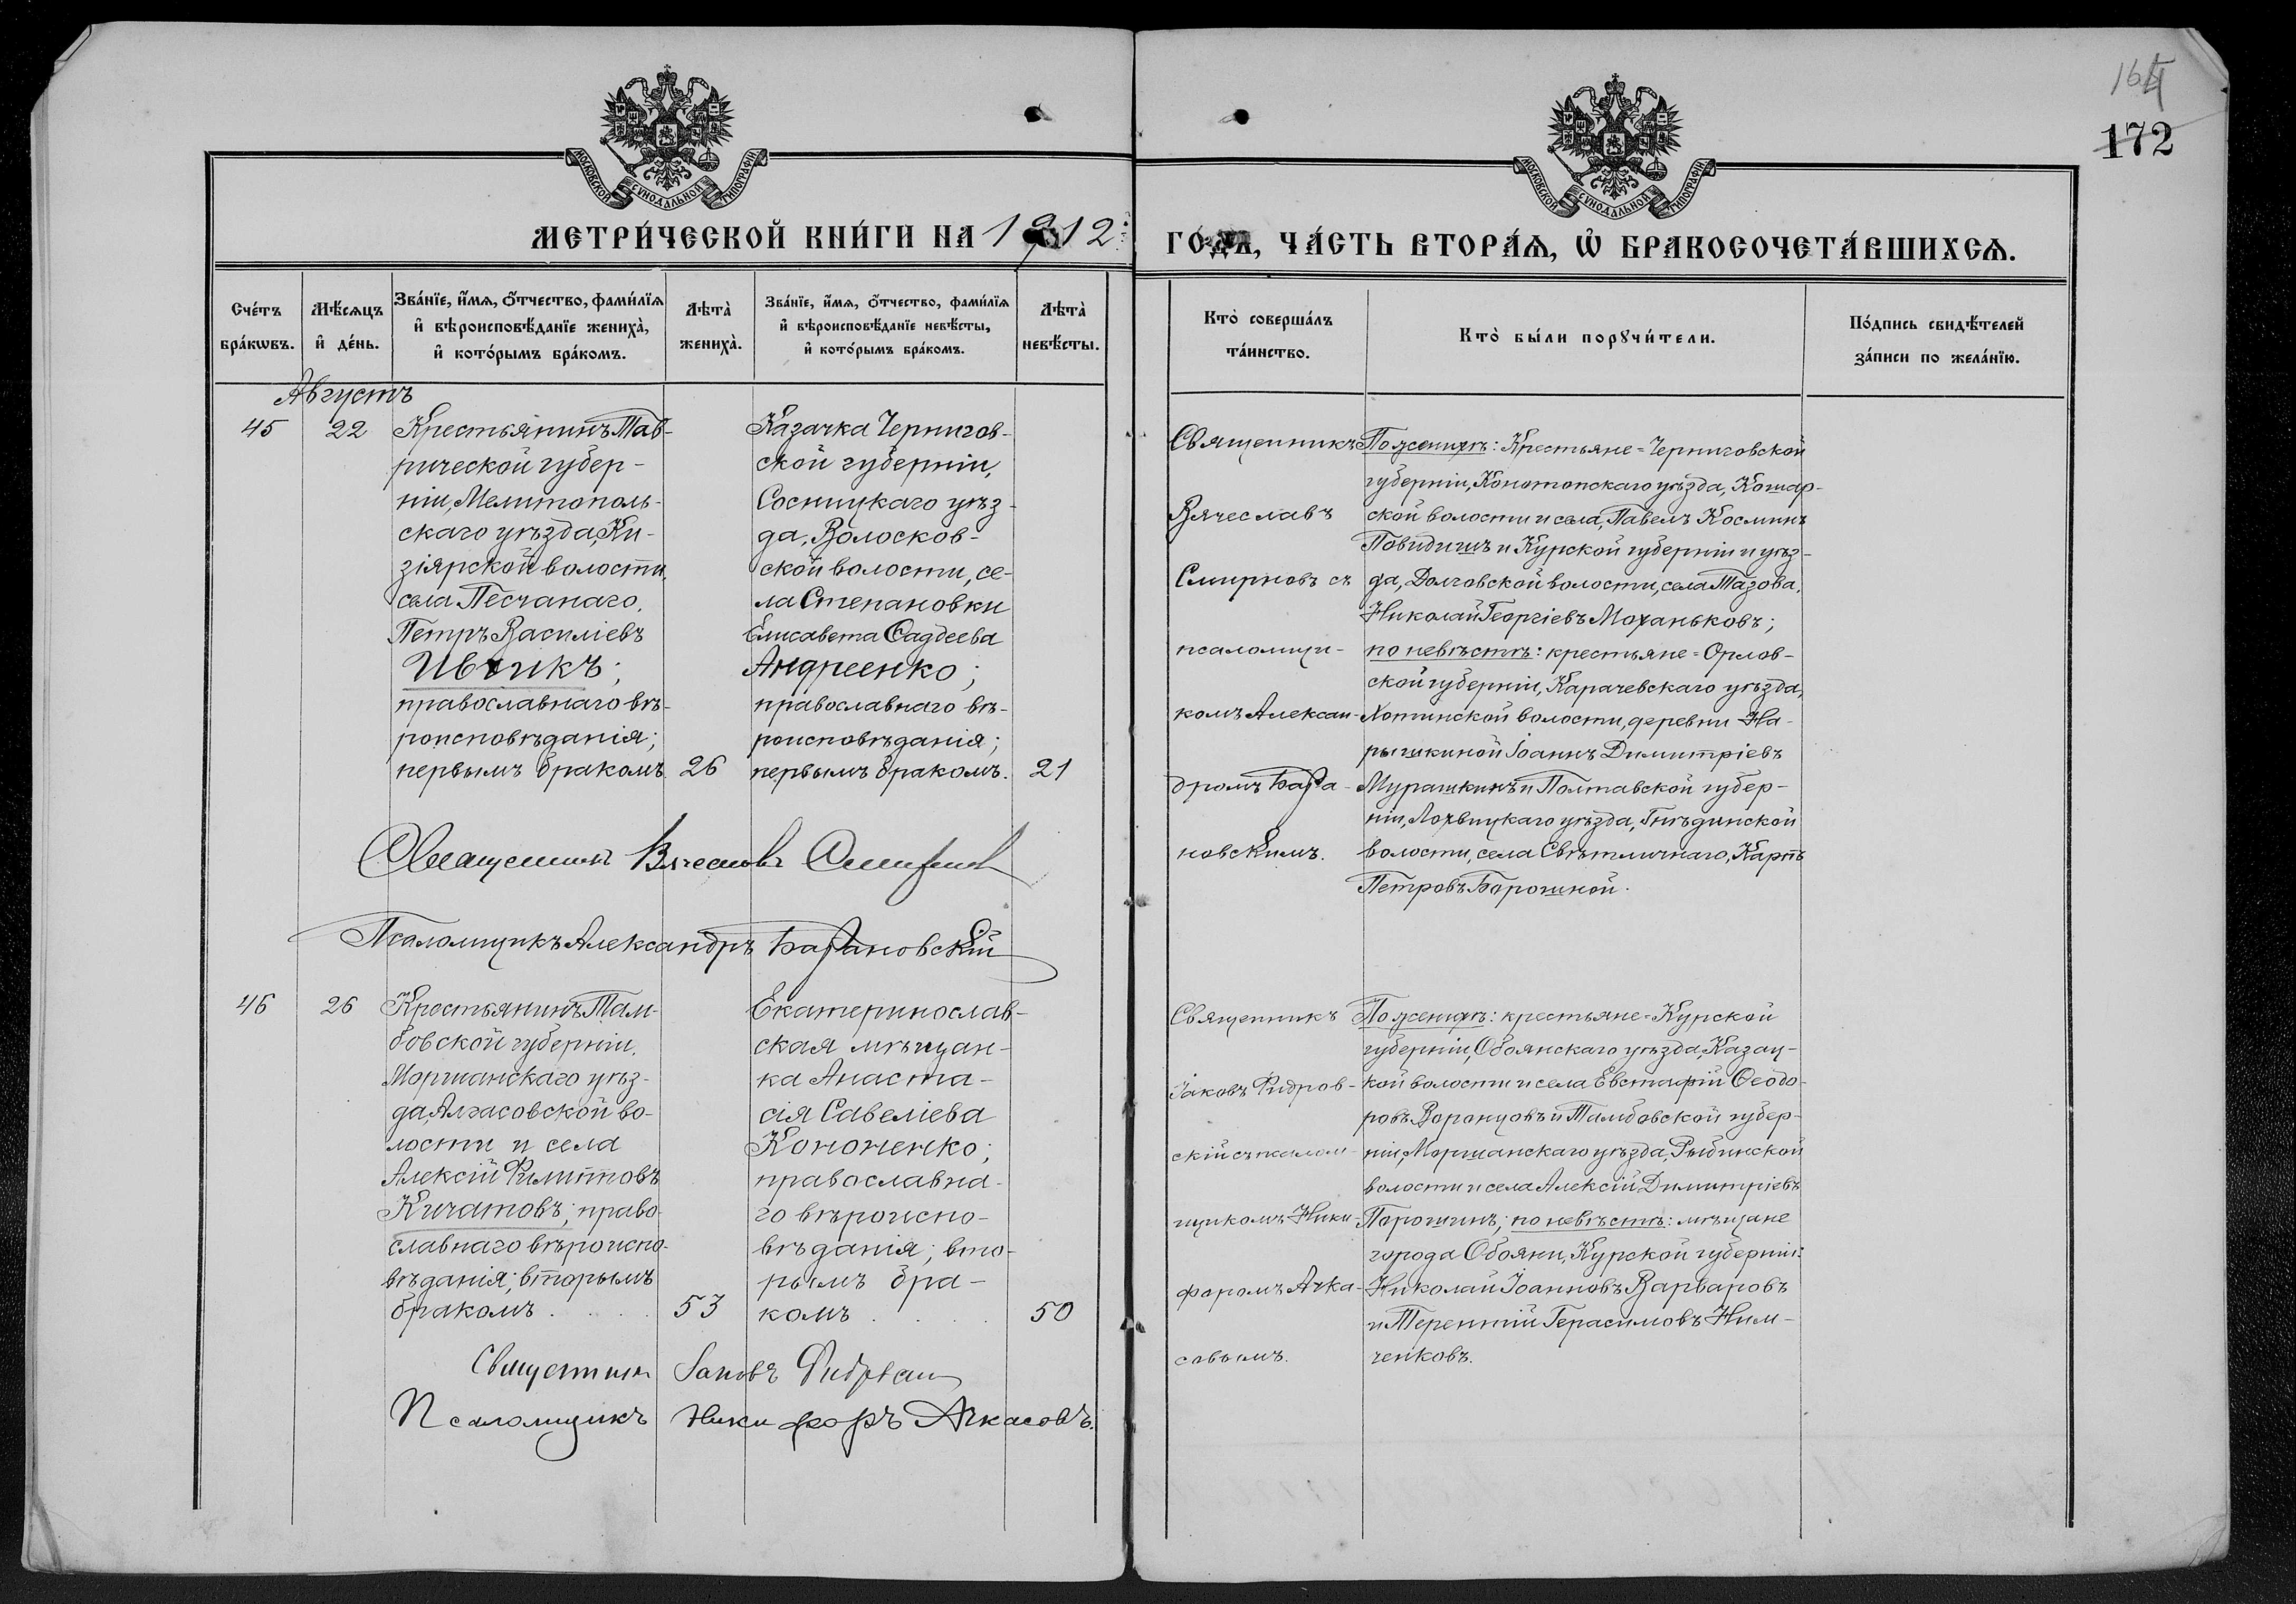 164
172
МОСКОВСКОЙ СУНОДАЛЬНОЙ ТИПОГРАФІИ
МОСКОВСКОЙ СУНОДАЛЬНОЙ ТИПОГРАФІИ
МЕТРИ́ЧЕСКОЙ КНИ́ГИ НА 1912
ГО́ДЪ, ЧА́СТЬ ВТОРА́Я, Ѡ БРАКОСОЧЕТА́ВШИХСЯ.
Сче́тъ
бра́кѡвъ.
Мѣ́сяцъ
и҆ де́нь.
Зва́нїе, и҆́мя, ѻ҆́тчество, фами́лїя
и҆ вѣроисповѣ́данїе жениха̀,
и҆ кото́рымъ бра́комъ.
Лѣта̀
жениха̀.
Зва́нїе, и҆́мя, ѻ҆́тчество, фами́лїя
и҆ вѣроисповѣ́данїе невѣ́сты,
и҆ кото́рымъ бра́комъ.
Лѣта̀
невѣ́сты.
Кто̀ соверша́лъ
та́инство.
Кто̀ бы́ли порꙋчи́тели.
По́дпись свидѣ́телей
за́писи по жела́нїю.
Августъ
45
22
Крестьянинъ Тав-
рической губер-
ніи, Мелитополь-
скаго уѣзда, Ки-
зіярской волости,
села Песчанаго,
Петръ Василіевъ
Ивчикъ;
православнаго вѣ-
роисповѣданія;
первымъ бракомъ.
26
Казачка Чернигов-
ской губерніи,
Сосницкаго уѣз-
да, Волосков-
ской волости, се-
ла Степановки
Елисавета Ѳаддеева
Андреенко;
православнаго вѣ-
роисповѣданія;
первымъ бракомъ.
21
Священникъ
Вячеславъ
Смирновъ съ
псаломщи-
комъ Алексан-
дромъ Бара-
новскимъ.
По женихѣ: Крестьяне=Черниговской
губерніи, Конотопскаго уѣзда, Кошар-
ской волости и села, Павелъ Косминъ
Повидишъ и Курской губерніи и уѣз-
да, Долговской волости, села Тазова,
Николай Георгіевъ Моханьковъ;
по невѣстѣ: крестьяне=Орлов-
ской губерніи, Карачевскаго уѣзда,
Хотинской волости, деревни На-
рышкиной Іоаннъ Димитріевъ
Мурашкинъ и Полтавской губер-
ніи, Лохвицкаго уѣзда, Гнѣдинской
волости, села Свѣтличнаго, Карпъ
Петровъ Борошной.
Священникъ Вячеславъ Смирновъ
Псаломщикъ Александръ Барановскій
46
26
Крестьянинъ Там-
бовской губерніи,
Моршанскаго уѣз-
да, Алгасовской во-
лости и села
Алексій Филипповъ
Кичатовъ; право-
славнаго вѣроиспо-
вѣданія; вторымъ
бракомъ . . . .
53
Екатеринослав-
ская мѣщан-
ка Анаста-
сія Савеліева
Кононенко;
православна-
го вѣроиспо-
вѣданія; вто-
рымъ бра-
комъ . . . .
50
Священникъ
Іаковъ Фидров-
скій съ псалом-
щикомъ Ники-
форомъ Ачка-
совымъ.
По женихѣ: крестьяне=Курской
губерніи, Обоянскаго уѣзда, Казац-
кой волости и села Евстафій Ѳеодо-
ровъ Воронцовъ и Тамбовской губер-
ніи, Моршанскаго уѣзда, Рыбинской
волости и села Алексій Димитріевъ
Порошинъ; по невѣстѣ: мѣщане
города Обояни, Курской губерніи:
Николай Іоанновъ Варваровъ
и Терентій Герасимовъ Ним-
ченковъ.
Священникъ Іаковъ
Псаломщикъ Никифоръ Ачкасовъ.